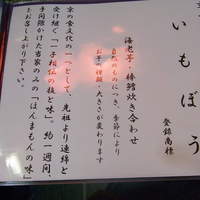 いもぼう
登録商標
海老芋・棒鱈炊き合わせ
自然のものにつき、季節により
お芋の種類・大きさが変わります
京の食文化の一つとして、先祖より連綿と
受け継ぐ「一子相伝の技と味」。約一週間、
手間隙かけた当家のみの「ほんまもんの味」
をお召し上がり下さい。